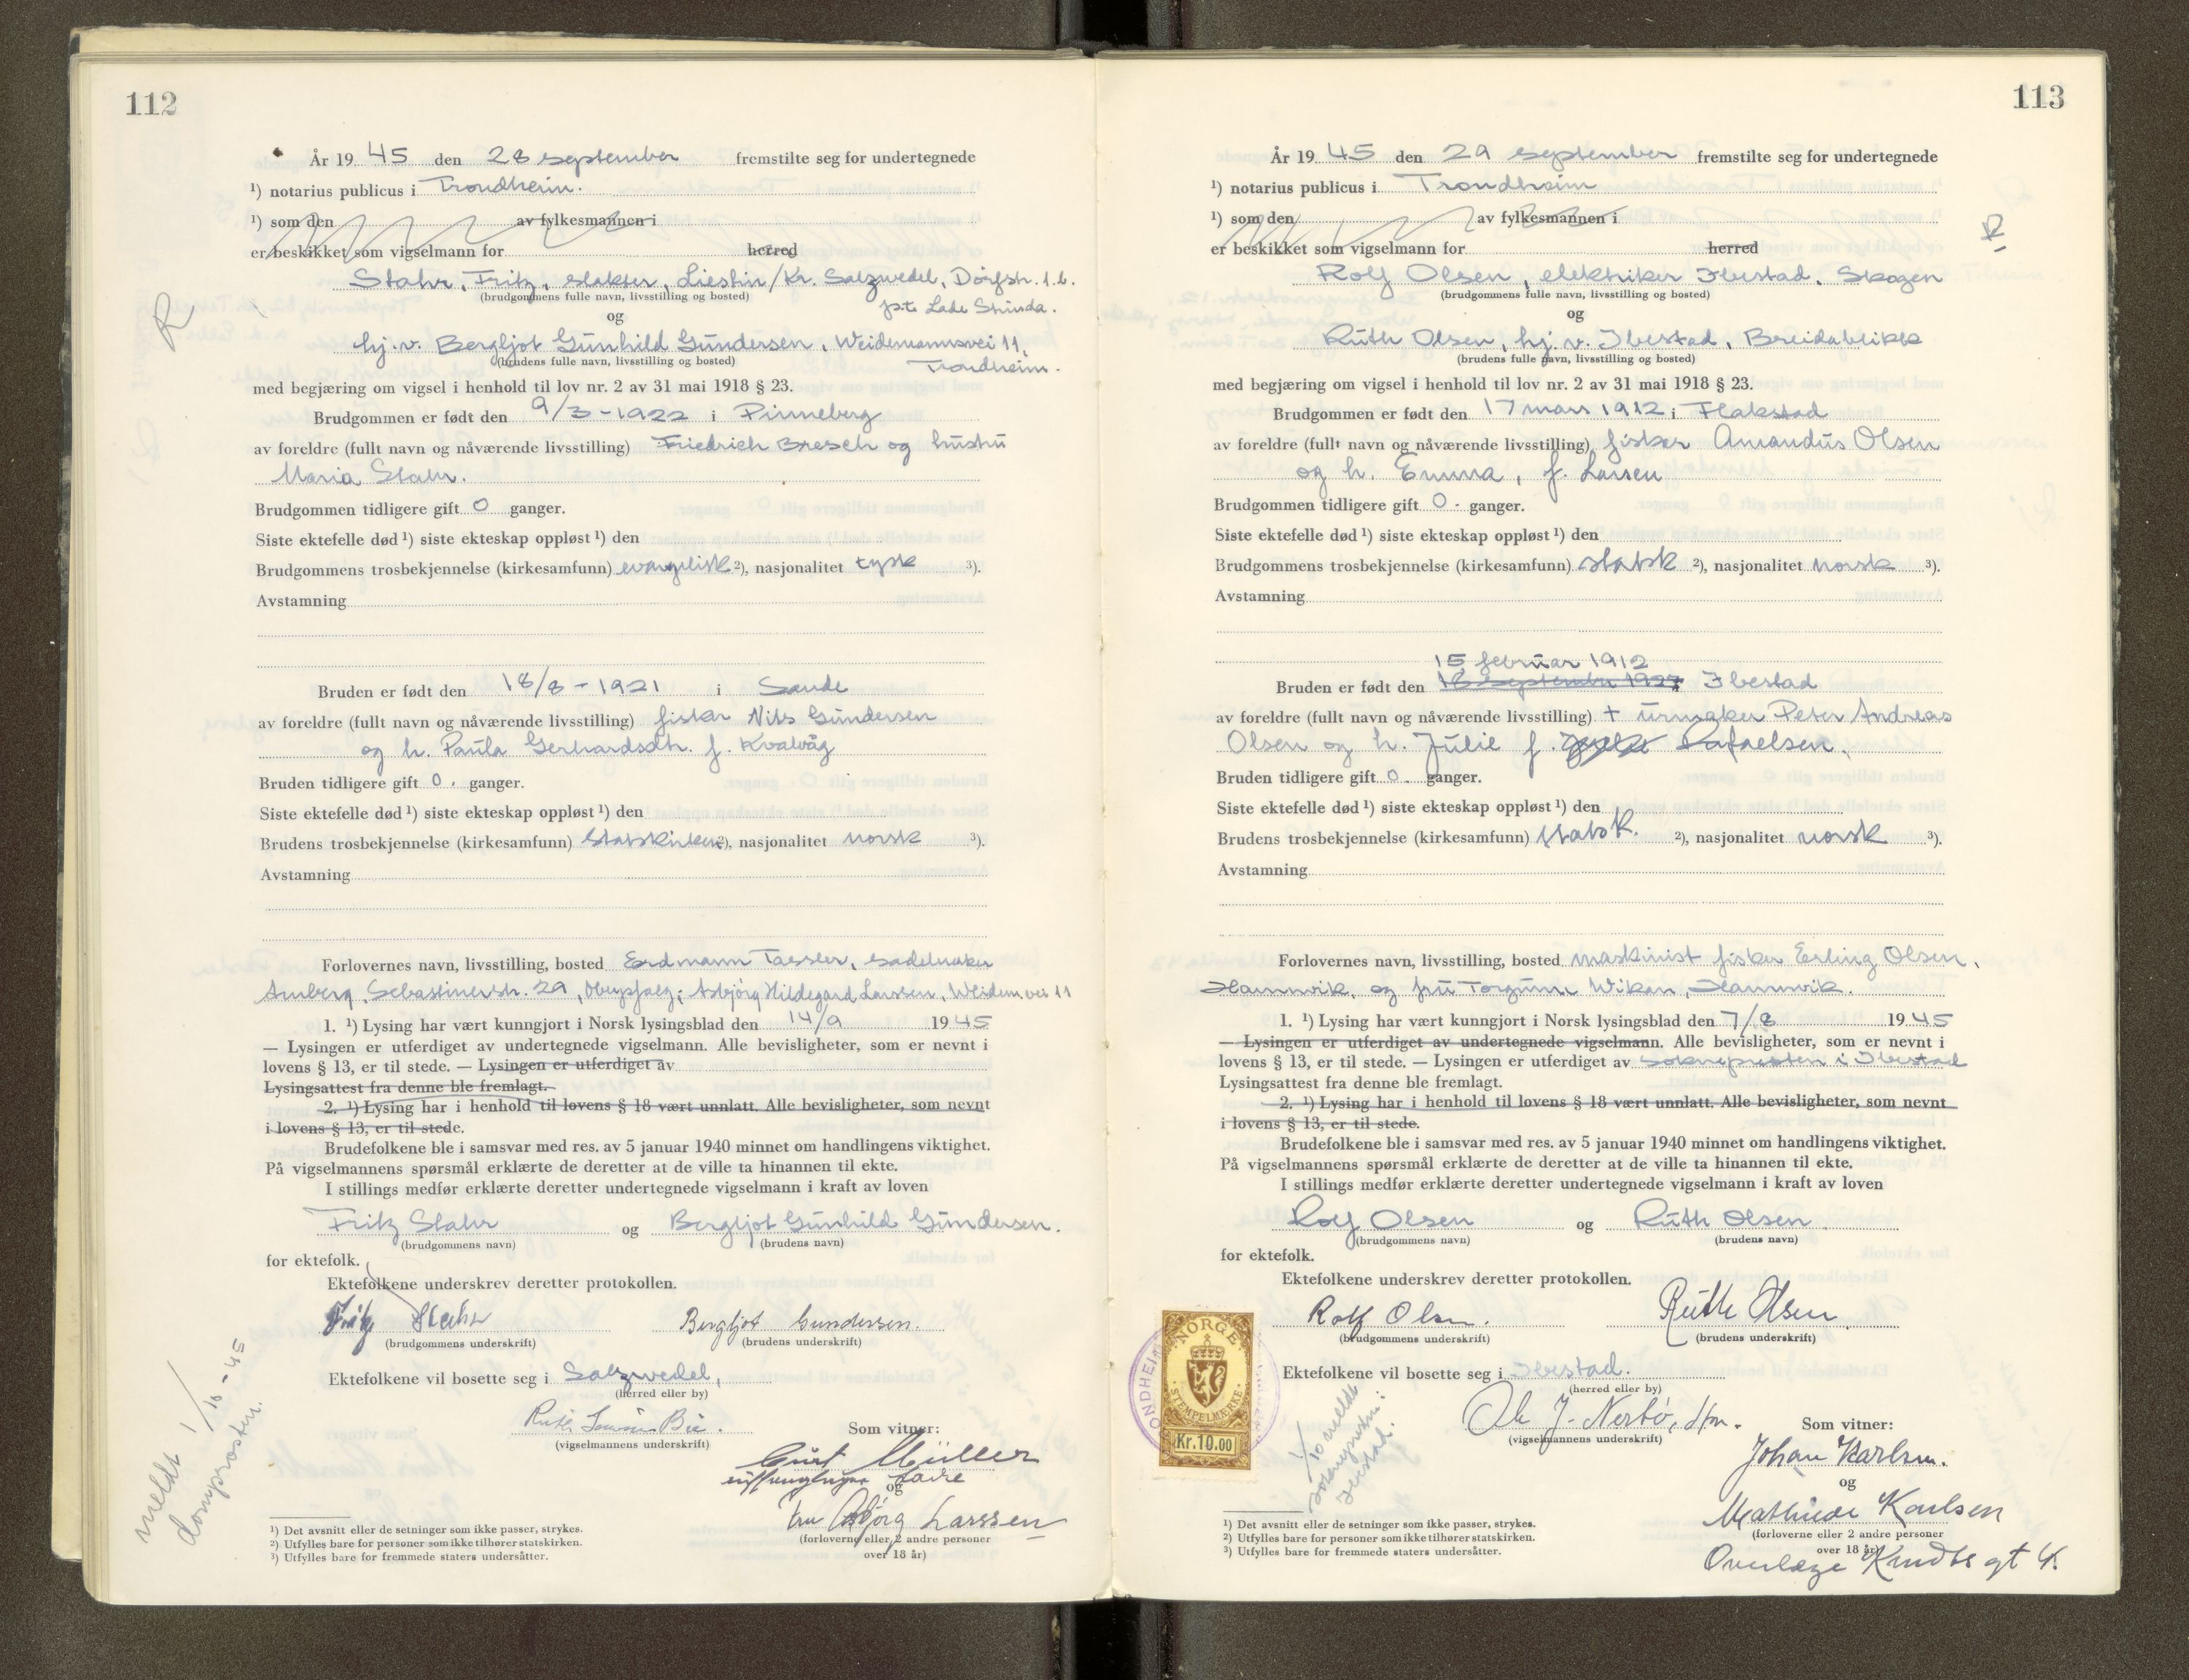 112
År 19 45 den 28 september fremstilte seg for undertegnede
¹) notarius publicus i Trondheim.
¹) som den av fylkesmannen i
er beskikket som vigselmann for herred
Stahr, Fritz, slakter, Liestin/Kr. Salzwedel, Dörfstr. 1.b.
(brudgommens fulle navn, livsstilling og bosted)
p.t. Lade Strinda.
og
hj.v. Bergljot Gunhild Gundersen, Weidemannsvei 11,
(brudens fulle navn, livsstilling og bosted)
Trondheim.
med begjæring om vigsel i henhold til lov nr. 2 av 31 mai 1918 § 23.
Brudgommen er født den 9/3-1922 i Pinneberg
av foreldre (fullt navn og nåværende livsstilling) Friedrich Bresch og hustru
Maria Stahr.
Brudgommen tidligere gift 0 ganger.
Siste ektefelle død ¹) siste ekteskap oppløst ¹) den
Brudgommens trosbekjennelse (kirkesamfunn) evangelisk ²), nasjonalitet tysk ³).
Avstamning
Bruden er født den 18/8-1921 i Sande
av foreldre (fullt navn og nåværende livsstilling) fisker Nils Gundersen
og h. Paula Gerhardsdtr. f. Kvalvåg
Bruden tidligere gift 0. ganger.
Siste ektefelle død ¹) siste ekteskap oppløst ¹) den
Brudens trosbekjennelse (kirkesamfunn) Statskirken ²), nasjonalitet norsk ³).
Avstamning
Forlovernes navn, livsstilling, bosted Erdmann Tassler, sadelmaker
Amberg, Sebastinerstr. 29, Oberpfalz; Asbjörg Hildegard Larssen, Weidem.vei 11
1. ¹) Lysing har vært kunngjort i Norsk lysingsblad den 14/9 1945
— Lysingen er utferdiget av undertegnede vigselmann. Alle bevisligheter, som er nevnt i
lovens § 13, er til stede. — Lysingen er utferdiget av
Lysingsattest fra denne ble fremlagt.
2. ¹) Lysing har i henhold til lovens § 18 vært unnlatt. Alle bevisligheter, som nevnt
i lovens § 13, er til stede.
Brudefolkene ble i samsvar med res. av 5 januar 1940 minnet om handlingens viktighet.
På vigselmannens spørsmål erklærte de deretter at de ville ta hinannen til ekte.
I stillings medfør erklærte deretter undertegnede vigselmann i kraft av loven
Fritz Stahr og Bergljot Gunhild Gundersen.
(brudgommens navn) (brudens navn)
for ektefolk.
Ektefolkene underskrev deretter protokollen.
Fritz Stahr Bergljot Gundersen.
(brudgommens underskrift) (brudens underskrift)
Ektefolkene vil bosette seg i Salzwedel,
(herred eller by)
(vigselmannens underskrift)
Som vitner:
Curt Müller
Lade
og
fru Asbjörg Larssen
(forloverne eller 2 andre personer
over 18 år)
meldt 1/10-45
domprosten.
R
¹) Det avsnitt eller de setninger som ikke passer, strykes.
²) Utfylles bare for personer som ikke tilhører statskirken.
³) Utfylles bare for fremmede staters undersåtter.
113
År 19 45 den 29 september fremstilte seg for undertegnede
¹) notarius publicus i Trondheim
¹) som den av fylkesmannen i
er beskikket som vigselmann for herred
R
Rolf Olsen, elektriker Ibestad, Skogen
(brudgommens fulle navn, livsstilling og bosted)
og
Ruth Olsen, hj.v. Ibestad, Breidablikk
(brudens fulle navn, livsstilling og bosted)
med begjæring om vigsel i henhold til lov nr. 2 av 31 mai 1918 § 23.
Brudgommen er født den 17 mars 1912 i Flakstad
av foreldre (fullt navn og nåværende livsstilling) fisker Amandus Olsen
og h. Emma, f. Larsen
Brudgommen tidligere gift 0. ganger.
Siste ektefelle død ¹) siste ekteskap oppløst ¹) den
Brudgommens trosbekjennelse (kirkesamfunn) statsk ²), nasjonalitet norsk ³).
Avstamning
15 februar 1912
Bruden er født den 18 september 1927 Ibestad
av foreldre (fullt navn og nåværende livsstilling) + urmaker Peter Andreas
Olsen og h. Julie f. Rafaelsen.
Bruden tidligere gift 0. ganger.
Siste ektefelle død ¹) siste ekteskap oppløst ¹) den
Brudens trosbekjennelse (kirkesamfunn) statsk. ²), nasjonalitet norsk ³).
Avstamning
Forlovernes navn, livsstilling, bosted maskinist fisker Erling Olsen,
Hamnvik, og fru Torgunn Wikan, Hamnvik.
1. ¹) Lysing har vært kunngjort i Norsk lysingsblad den 7/8 1945
— Lysingen er utferdiget av undertegnede vigselmann. Alle bevisligheter, som er nevnt i
lovens § 13, er til stede. — Lysingen er utferdiget av soknepresten i Ibestad
Lysingsattest fra denne ble fremlagt.
2. ¹) Lysing har i henhold til lovens § 18 vært unnlatt. Alle bevisligheter, som nevnt
i lovens § 13, er til stede.
Brudefolkene ble i samsvar med res. av 5 januar 1940 minnet om handlingens viktighet.
På vigselmannens spørsmål erklærte de deretter at de ville ta hinannen til ekte.
I stillings medfør erklærte deretter undertegnede vigselmann i kraft av loven
Rolf Olsen og Ruth Olsen.
(brudgommens navn) (brudens navn)
for ektefolk.
Ektefolkene underskrev deretter protokollen.
Rolf Olsen. Ruth Olsen.
(brudgommens underskrift) (brudens underskrift)
Ektefolkene vil bosette seg i Ibestad.
(herred eller by)
Ole J. Nerbö, dfm.
(vigselmannens underskrift)
Som vitner:
Johan Karlsen.
og
Mathilde Karlsen
(forloverne eller 2 andre personer
over 18 år)
Overlege Kindts gt 4.
NORGE
STEMPELMERKE
Kr.10.00
ONDHEIM
1/10 meldt
soknepresten i
Ibestad.
¹) Det avsnitt eller de setninger som ikke passer, strykes.
²) Utfylles bare for personer som ikke tilhører statskirken.
³) Utfylles bare for fremmede staters undersåtter.